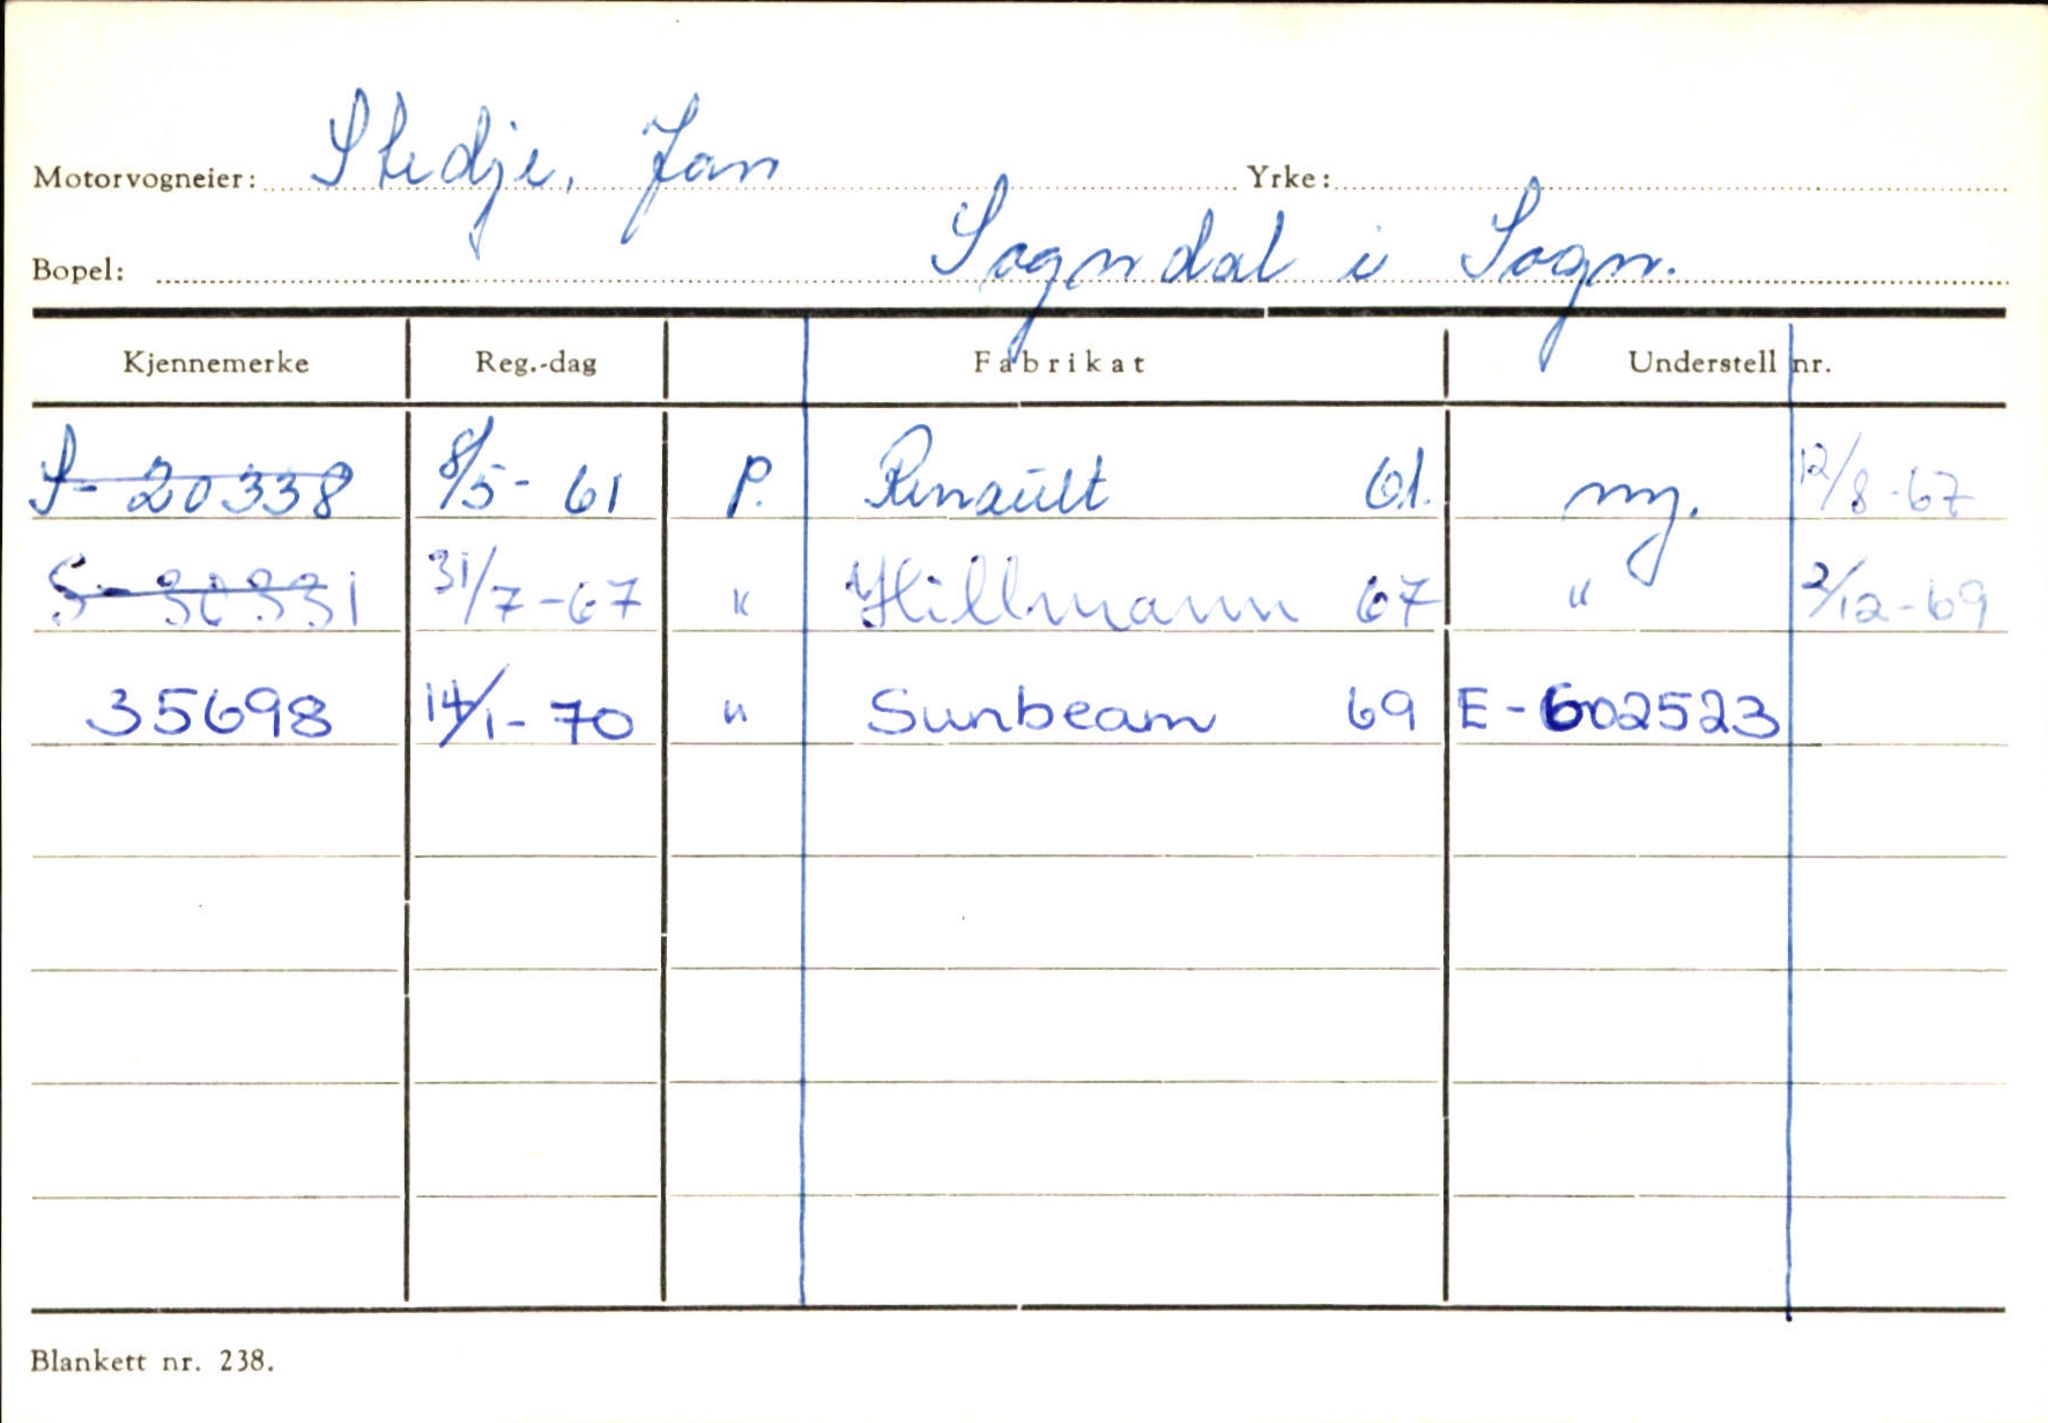 Motorvogneier: Stedje, Jan Yrke:
Bopel: Sogndal i Sogn.
Kjennemerke Reg.-dag Fabrikat Understell nr.
S-20338 8/5-61 P. Renault 61. ny. 12/8-67
31/7-67 " Hillmann 67 " 2/12-69
35698 14/1-70 " Sunbeam 69 E-602523
Blankett nr. 238.